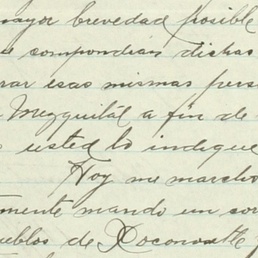 mayor brevedad posible
se compondrán dichas
rar esas mismas pers
Mezquital a fin de
usted lo indique
Hoy me marcho
mente mando un cor
ueblos de Xoconostle